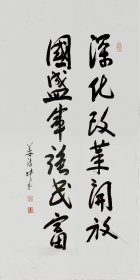 深化改革開放
國盛軍強民富